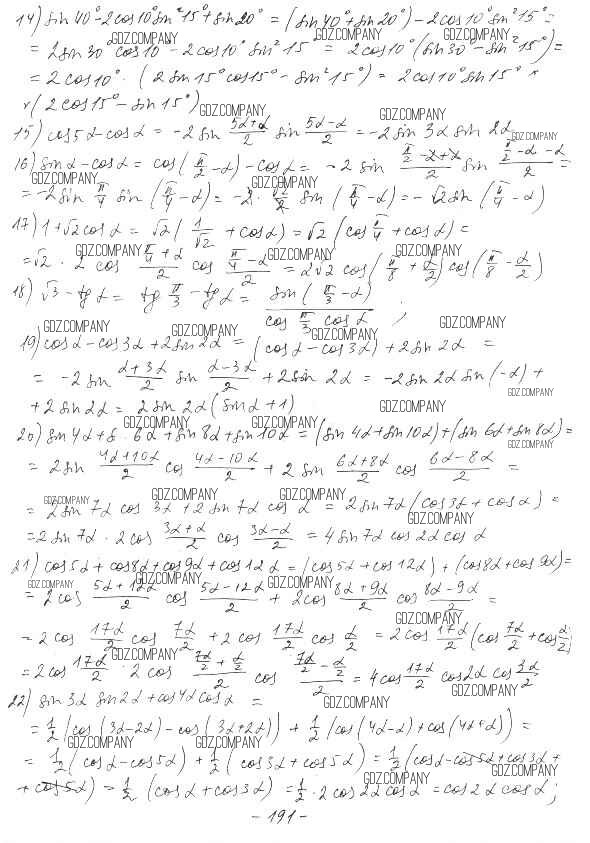 14) sin 40° - 2cos 10° sin² 15° + sin 20° = (sin 40° + sin 20°) - 2cos 10° sin² 15° =
= 2 sin 30° cos 10° - 2 cos 10° sin² 15° = 2cos 10° (sin 30° - sin² 15°) =
= 2 cos 10° · (2 sin 15° cos 15° - sin² 15°) = 2 cos 10° sin 15° ×
× (2 cos 15° - sin 15°)
15) cos 5α - cos α = -2 sin (5α+α)/2 sin (5α-α)/2 = -2 sin 3α sin 2α
16) sin α - cos α = cos(π/2 - α) - cos α = -2 sin (π/2 - α + α)/2 sin (π/2 - α - α)/2 =
= -2 sin π/4 sin (π/4 - α) = -2 · √2/2 sin (π/4 - α) = -√2 sin (π/4 - α)
17) 1 + √2 cos α = √2 (1/√2 + cos α) = √2 (cos π/4 + cos α) =
= √2 · 2 cos (π/4 + α)/2 cos (π/4 - α)/2 = 2√2 cos (π/8 + α/2) cos (π/8 - α/2)
18) √3 - tg α = tg π/3 - tg α = sin (π/3 - α)/(cos π/3 cos α) ;
19) cos α - cos 3α + 2 sin 2α = (cos α - cos 3α) + 2 sin 2α =
= -2 sin (α+3α)/2 sin (α-3α)/2 + 2 sin 2α = -2 sin 2α sin (-α) +
+ 2 sin 2α = 2 sin 2α (sin α + 1)
20) sin 4α + s 6α + sin 8α + sin 10α = (sin 4α + sin 10α) + (sin 6α + sin 8α) =
= 2 sin (4α+10α)/2 cos (4α-10α)/2 + 2 sin (6α+8α)/2 cos (6α-8α)/2 =
= 2 sin 7α cos 3α + 2 sin 7α cos α = 2 sin 7α (cos 3α + cos α) =
= 2 sin 7α · 2 cos (3α+α)/2 cos (3α-α)/2 = 4 sin 7α cos 2α cos α
21) cos 5α + cos 8α + cos 9α + cos 12α = (cos 5α + cos 12α) + (cos 8α + cos 9α) =
= 2 cos (5α+12α)/2 cos (5α-12α)/2 + 2 cos (8α+9α)/2 cos (8α-9α)/2 =
= 2 cos 17α/2 cos 7α/2 + 2 cos 17α/2 cos α/2 = 2 cos 17α/2 (cos 7α/2 + cos α/2)
= 2 cos 17α/2 · 2 cos (7α/2 + α/2)/2 cos (7α/2 - α/2)/2 = 4 cos 17α/2 cos 2α cos 3α/2
22) sin 3α sin 2α + cos 4α cos α =
= 1/2 (cos (3α-2α) - cos (3α+2α)) + 1/2 (cos (4α-α) + cos (4α+α)) =
= 1/2 (cos α - cos 5α) + 1/2 (cos 3α + cos 5α) = 1/2 (cos α - cos 5α + cos 3α +
+ cos 5α) = 1/2 (cos α + cos 3α) = 1/2 · 2 cos 2α cos α = cos 2α cos α ;
- 191 -